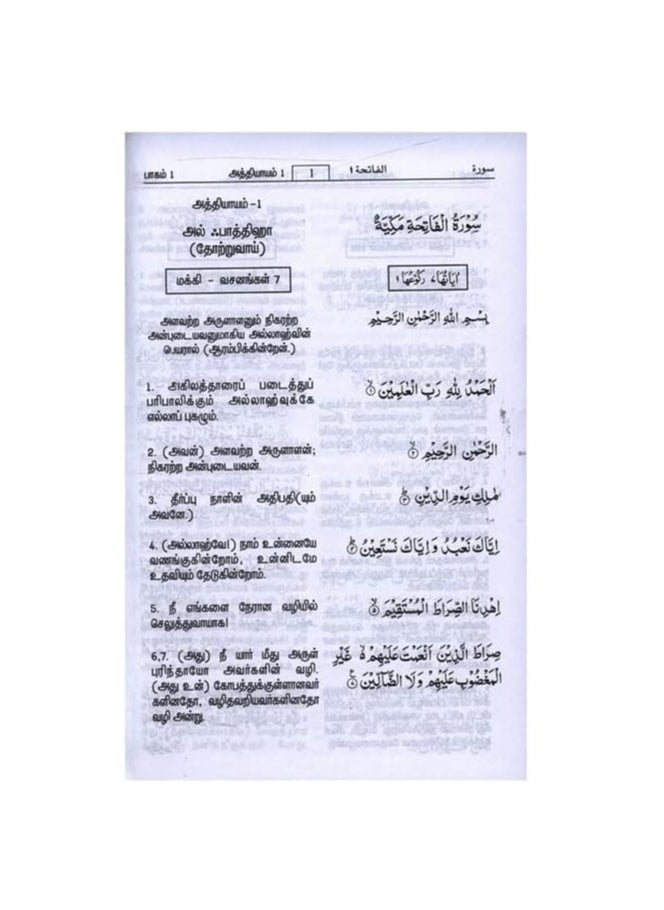 பாகம் 1 அத்தியாயம் 1 1 الفاتحة ١ سورة
அத்தியாயம் -1
அல் ஃபாத்திஹா
(தோற்றுவாய்)
மக்கி - வசனங்கள் 7
அளவற்ற அருளாளனும் நிகரற்ற
அன்புடையவனுமாகிய அல்லாஹ்வின்
பெயரால் (ஆரம்பிக்கின்றேன்.)
1. அகிலத்தாரைப் படைத்துப்
பரிபாலிக்கும் அல்லாஹ்வுக்கே
எல்லாப் புகழும்.
2. (அவன்) அளவற்ற அருளாளன்;
நிகரற்ற அன்புடையவன்.
3. தீர்ப்பு நாளின் அதிபதி(யும்
அவனே.)
4. (அல்லாஹ்வே!) நாம் உன்னையே
வணங்குகின்றோம், உன்னிடமே
உதவியும் தேடுகின்றோம்.
5. நீ எங்களை நேரான வழியில்
செலுத்துவாயாக!
6,7. (அது) நீ யார் மீது அருள்
புரிந்தாயோ அவர்களின் வழி.
(அது உன்) கோபத்துக்குள்ளானவர்
களினதோ, வழிதவறியவர்களினதோ
வழி அன்று.
سُوْرَةُ الْفَاتِحَةِ مَكِّيَّةٌ
اٰيَاتُهَا ٧ رُكُوْعُهَا ١
بِسْمِ اللهِ الرَّحْمٰنِ الرَّحِيْمِ
اَلْحَمْدُ لِلّٰهِ رَبِّ الْعٰلَمِيْنَ ۝١
الرَّحْمٰنِ الرَّحِيْمِ ۝٢
مٰلِكِ يَوْمِ الدِّيْنِ ۝٣
اِيَّاكَ نَعْبُدُ وَاِيَّاكَ نَسْتَعِيْنُ ۝٤
اِهْدِنَا الصِّرَاطَ الْمُسْتَقِيْمَ ۝٥
صِرَاطَ الَّذِيْنَ اَنْعَمْتَ عَلَيْهِمْ ۝٦ غَيْرِ
الْمَغْضُوْبِ عَلَيْهِمْ وَلَا الضَّآلِّيْنَ ۝٧